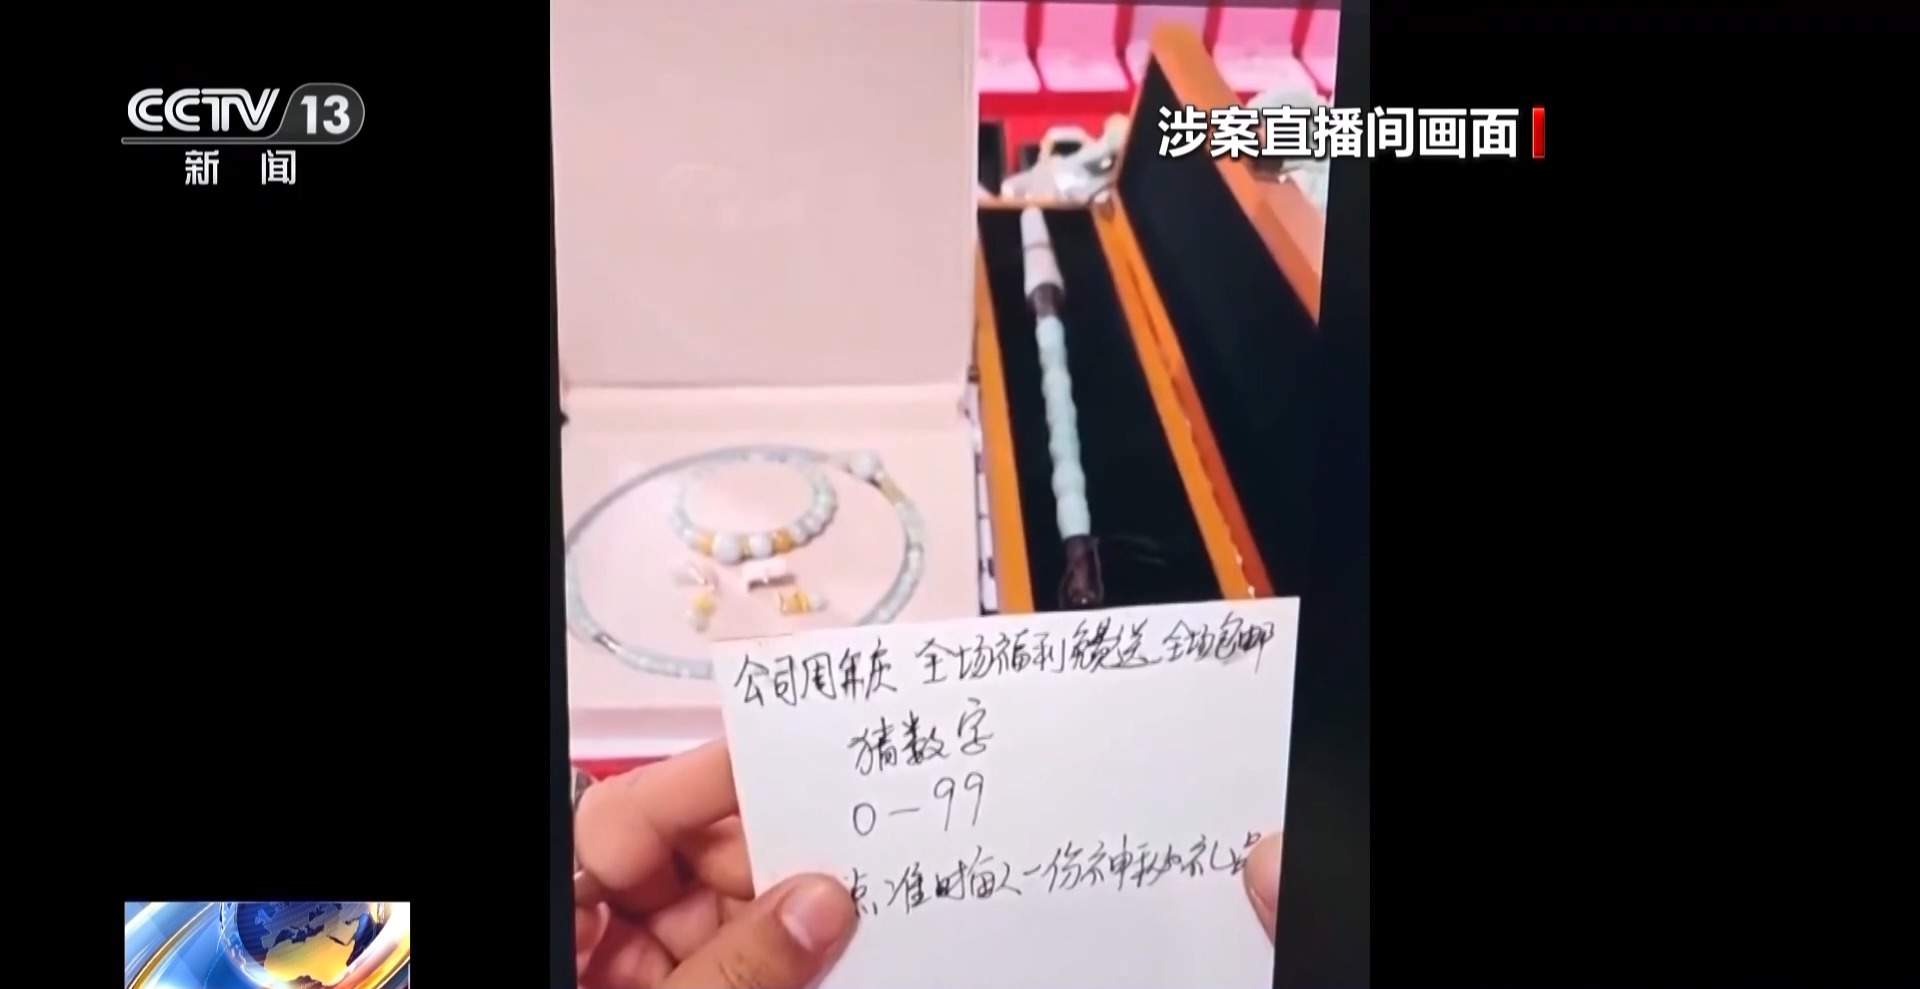 CCTV 13
新闻
涉案直播间画面
公司周年庆 全场福利免费送 全场包邮
猜数字
0-99
点准时每人一份神秘礼品